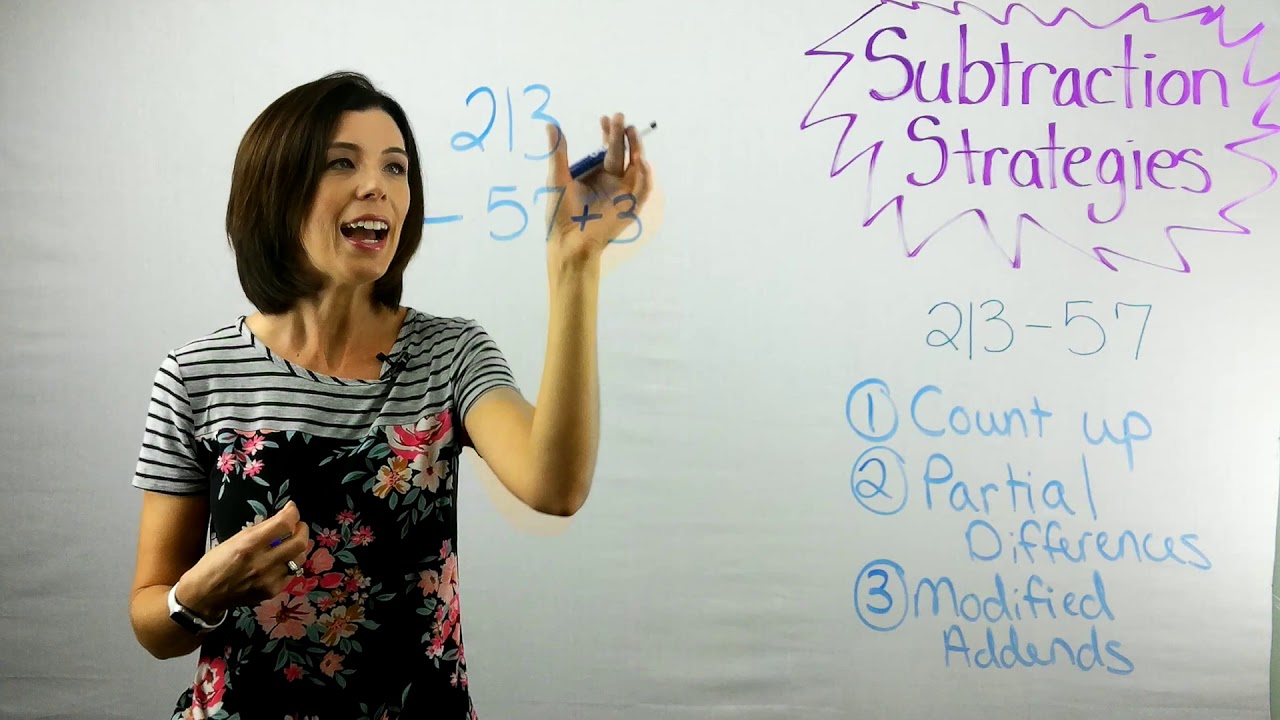 213
- 57 + 3
Subtraction
Strategies
213 - 57
① Count up
② Partial
Differences
③ Modified
Addends